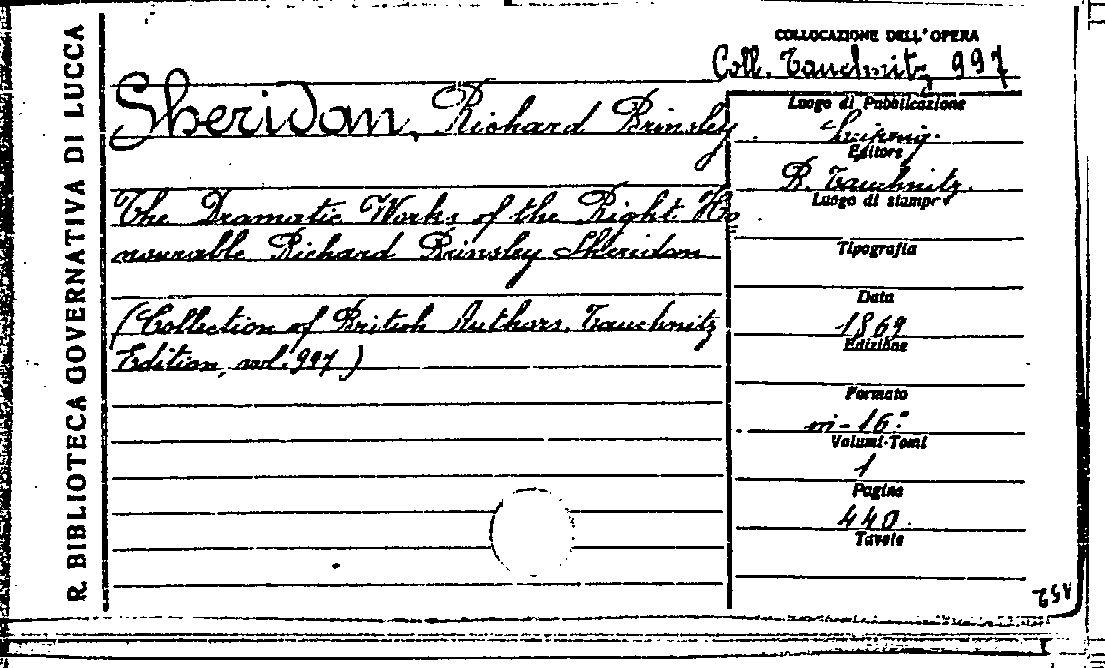 R. BIBLIOTECA GOVERNATIVA DI LUCCA
COLLOCAZIONE DELL'OPERA
Coll. Tauchnitz 997
Sheridan, Richard Brinsley.
The Dramatic Works of the Right Ho=
nourable Richard Brinsley Sheridan
(Collection of British Authors. Tauchnitz
Edition, vol. 997)
Luogo di Pubblicazione
Leipzig.
Editore
B. Tauchnitz.
Luogo di stampa
Tipografia
Data
1869
Edizione
Formato
in-16°
Volumi-Tomi
1
Pagine
440.
Tavole